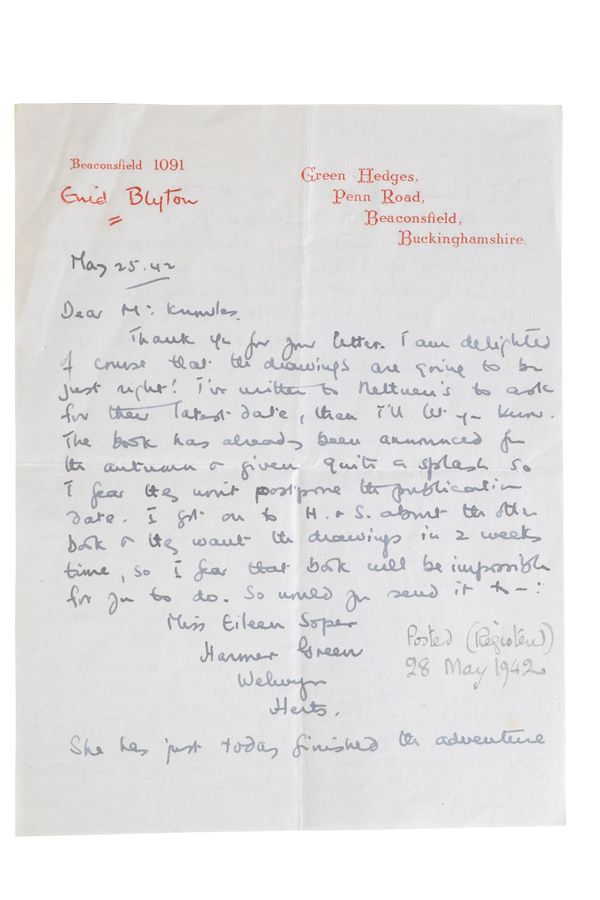 Beaconsfield 1091
Enid Blyton
Green Hedges,
Penn Road,
Beaconsfield,
Buckinghamshire.
May 25. 42
Dear Mr. Knowles,
Thank you for your letter. I am delighted
of course that the drawings are going to be
just right! I've written to Methuen's to ask
for their latest date, then I'll let you know.
The book has already been announced for
the autumn & given quite a splash so
I fear they won't postpone the publication
date. I got on to H. & S. about the other
book & they want the drawings in 2 weeks
time, so I fear that book will be impossible
for you to do. So would you send it to -:
Miss Eileen Soper
Harmer Green
Welwyn
Herts.
Posted (Registered)
28 May 1942
She has just today finished the adventure